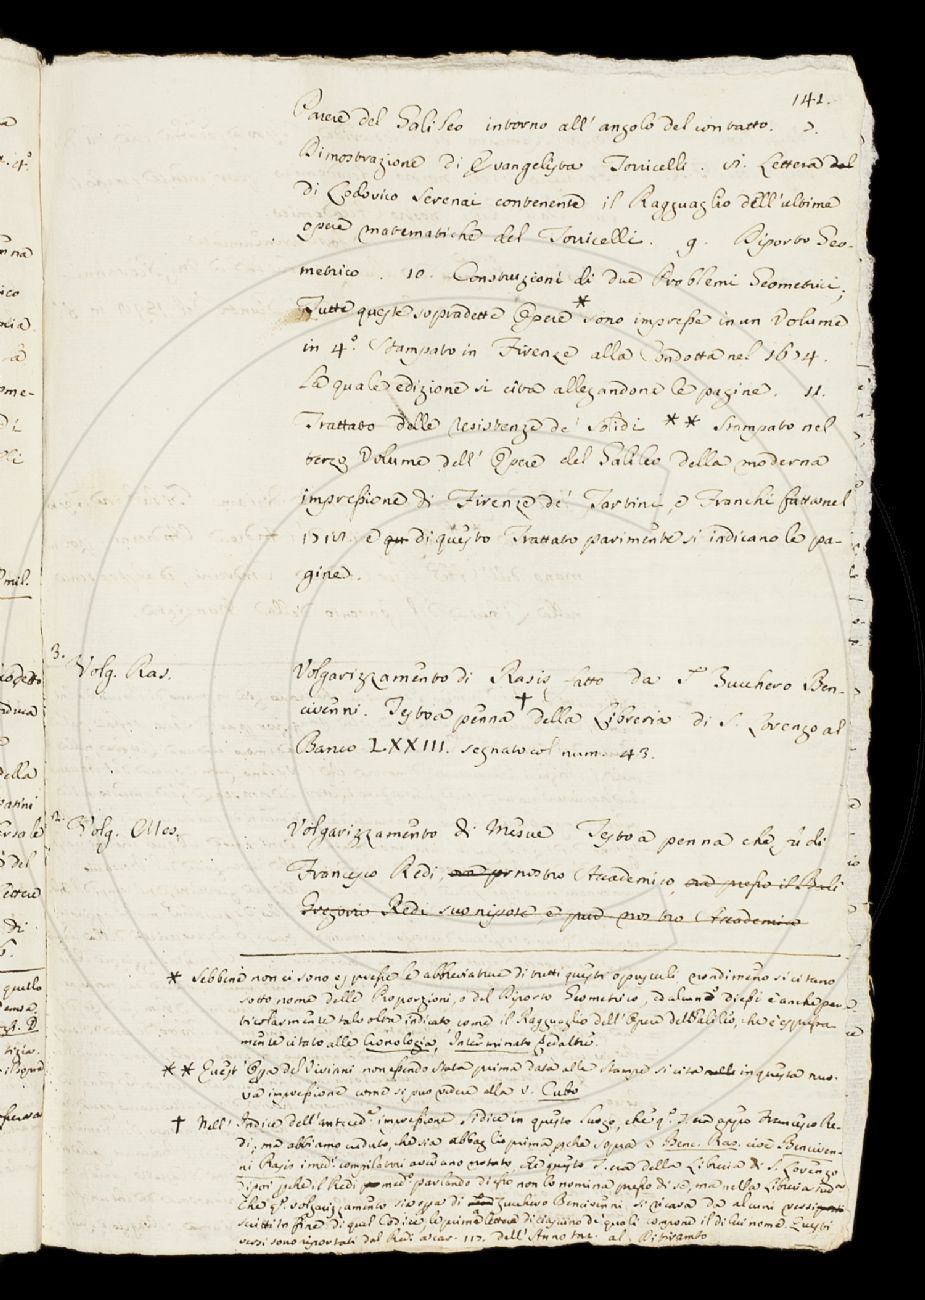 141.
Parere del Galileo intorno all' angolo del contatto. 7.
Dimostrazione di Evangelista Torricelli. 8. Lettera del
di Lodovico Serenai contenente il Ragguaglio dell' ultime
opere matematiche del Torricelli. 9. Diporto Geo-
metrico. 10. Construzioni di due Problemi Geometrici;
Tutte queste sopradette Opere * sono impresse in un Volume
in 4.° Stampato in Firenze alla Condotta nel 1674.
La quale edizione si cita allegandone le pagine. 11.
Trattato delle resistenze de' Solidi ** Stampato nel
terzo Volume dell' Opere del Galileo della moderna
impressione di Firenze de' Tartini, e Franchi fatta nel
1718. e di questo Trattato parimente si indicano le pa-
gine.
3. Volg. Ras.
Volgarizzamento di Rasis fatto da Sr Zucchero Ben-
civenni. Testo a penna † della Libreria di S. Lorenzo al
Banco LXXIII. segnato col num. 43.
2. Volg. Mes.
Volgarizzamento di Mesue Testo a penna che fu di
Francesco Redi, nostro Accademico, ora presso il Balì
Gregorio Redi suo nipote e pure nostro Accademico
* Sebbene non ci sono espresse le abbreviature di tutti questi opusculi nondimeno si citano
sotto nome delle Proporzioni, o del Diporto Geometrico, ed alcuno d'essi è anche par-
ticolarmente talvolta indicato, come il Ragguaglio dell' Opere del Galileo, che è espressa-
mente citato alle Cronologia, Interminato ed altre.
** Quest' Opera del Viviani non essendo stata prima data alle stampe si cita in questa nuo-
va impressione come si può vedere alla v. Cubo
† Nell' Indice dell' anteced.e impressione si dice in questo luogo, che q.o T. era appo Francesco Re-
di, ma abbiamo creduto, che sia abbaglio prima perche sopra a Benc. Ras. cioè Benciven-
ni Rasis i med.i compilatori avevano notato, che questo T. era della Libreria di S. Lorenzo
di poi perche il Redi med.o parlando di esso non lo nomina presso di se, ma nella Libreria sud.a
Che q.o volgarizzamento sia opera di Zucchero Bencivenni si ricava da alcuni versi
scritti in fine di quel Codice, le prime lettere di ciascuno de' quali compone il di lui nome. Questi
versi sono riportati dal Redi a car. 117. dell' Annotaz. al Ditirambo